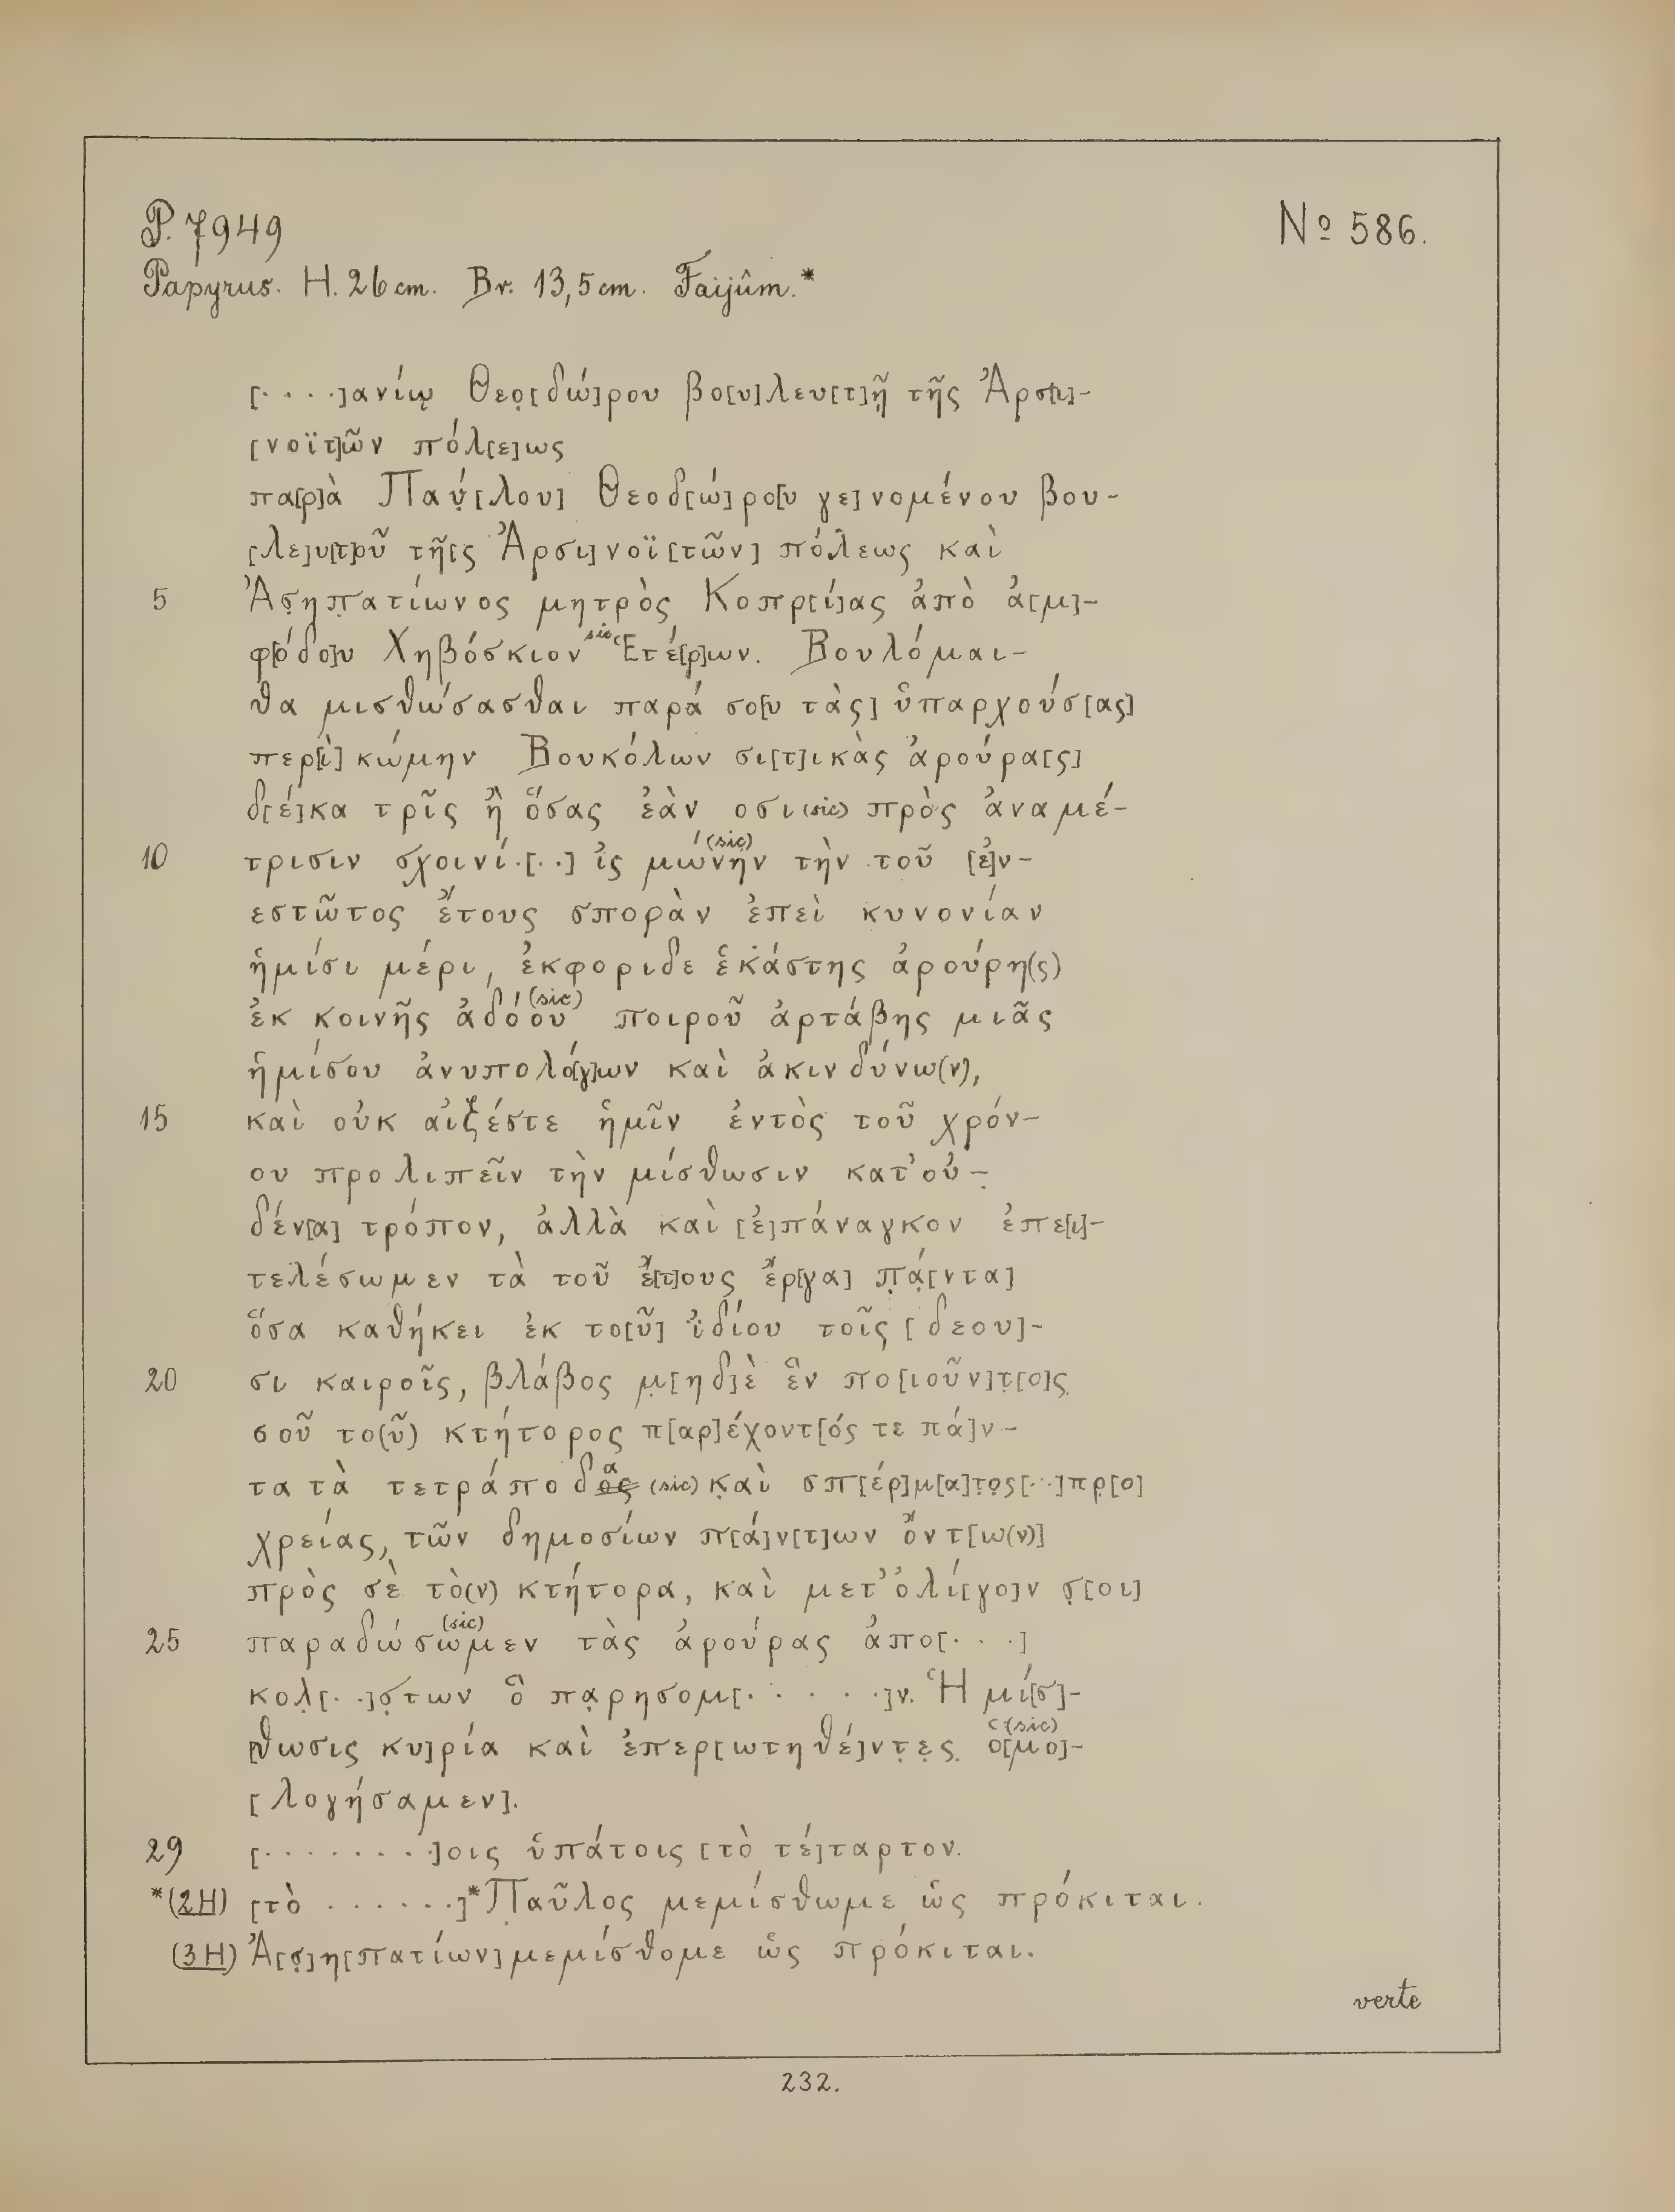 P. 7949
Nº 586.
Papyrus. H. 26 cm. Br. 13,5 cm. Faijûm.*
[· · · ·]ανίῳ Θεο̣[δώ]ρου βο[υ]λευ[τ]ῇ τῆς Ἀρσ[ι]-
[νοϊτ]ῶν πόλ[ε]ως
πα[ρ]ὰ Παύ̣[λου] Θεοδ[ώ]ρο[υ γε]νομένου βου-
[λε]υ[τ]οῦ τῆ[ς Ἀρσι]νοϊ[τῶν] πόλεως καὶ
5 Ἀσ̣ηπ̣ατίωνος μητρὸς Κοπρ[ί]ας ἀπὸ ἀ[μ]-
φ[όδο]υ Χηβόσκιον sic Ἑτέ[ρ]ων. Βουλόμαι-
θα μισθώσασθαι παρά σο[υ τὰς] ὑπαρχούσ[ας]
περ[ὶ] κώμην Βουκόλων σι[τ]ικὰς ἀρούρα[ς]
δ[έ]κα τρῖς ἢ ὅσας ἐὰν οσι (sic) πρὸς ἀναμέ-
10 τρισιν σχοινί·[· ·] ἰς μώνην (sic) τὴν τοῦ [ἐ]ν-
εστῶτος ἔτους σπορὰν ἐπεὶ κυνονίαν
ἡμίσι μέρι, ἐκφοριδε ἑκάστης ἀρούρη(ς)
ἐκ κοινῆς ἀδόου (sic) ποιροῦ ἀρτάβης μιᾶς
ἡμίσου ἀνυπολό[γ]ων καὶ ἀκινδύνω(ν),
15 καὶ οὐκ αἰξέστε ἡμῖν ἐντὸς τοῦ χρόν-
ου προλιπεῖν τὴν μίσθωσιν κατ’ οὐ-
δέν[α] τρόπον, ἀλλὰ καὶ [ἐ]πάναγκον ἐπε[ι]-
τελέσωμεν τὰ τοῦ ἔ[τ]ους ἔρ[γα] π̣ά̣[ντα]
ὅσα καθήκει ἐκ το[ῦ] ἰδίου τοῖς [δεου]-
20 σι καιροῖς, βλάβος μ̣[ηδ]ὲ ἓν πο[ιοῦν]τ̣[ο]ς̣
σοῦ το(ῦ) κτήτορος π[αρ]έχοντ[ός τε πά]ν-
τα τὰ τετράποδος α (sic) κ̣αὶ σπ[έρ]μ[α]τ̣ο̣ς[· ·]πρ̣[ο]
χρείας, τῶν δημοσίων π[ά]ν[τ]ων ὄντ[ω(ν)]
πρὸς σὲ τὸ(ν) κτήτορα, καὶ μετ’ ὀλί[γο]ν σ̣[οι]
25 παραδώσωμεν (sic) τὰς ἀρούρας ἀπο[· · ·]
κολ̣[· ·]σ̣των ὃ πα̣ρησομ[· · · · ·]ν. Ἡ μί[σ]-
[θωσις κυ]ρία καὶ ἐπερ[ωτηθέ]ντ̣ε̣ς̣ ὁ[μο]- (sic)
[λογήσαμεν].
29 [· · · · · · · ·]οις ὑπάτοις [τὸ τέ]ταρτον.
*(2H) [τὸ · · · · · ·]* Π̣αῦλος μεμίσθωμε ὡς πρόκιται.
(3H) Ἀ[σ̣]η[πατίων] μεμίσθομε ὡς πρόκιται.
verte
232.